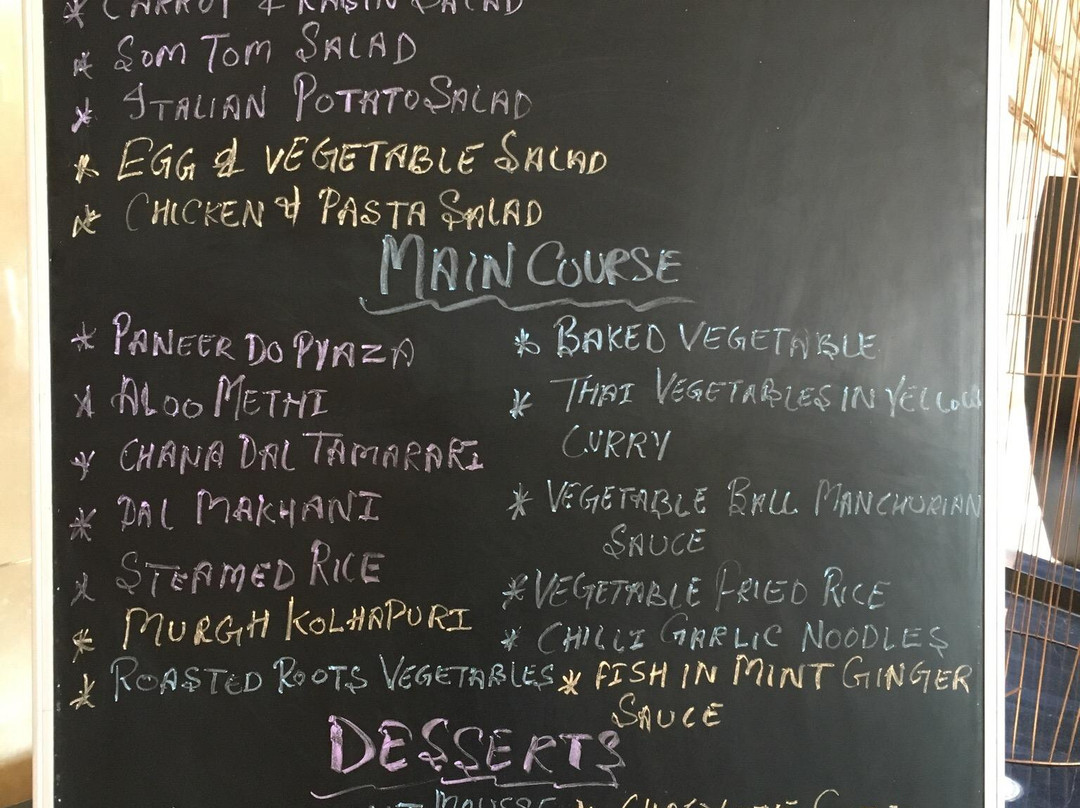 * CARROT & RAISIN SALAD
* SOM TOM SALAD
* ITALIAN POTATO SALAD
* EGG & VEGETABLE SALAD
* CHICKEN & PASTA SALAD
MAIN COURSE
* PANEER DO PYAZA
* ALOO METHI
* CHANA DAL TAMARARI
* DAL MAKHANI
* STEAMED RICE
* MURGH KOLHAPURI
* ROASTED ROOTS VEGETABLES
* BAKED VEGETABLE
* THAI VEGETABLES IN YELLOW
CURRY
* VEGETABLE BALL MANCHURIAN
SAUCE
* VEGETABLE FRIED RICE
* CHILLI GARLIC NOODLES
* FISH IN MINT GINGER
SAUCE
DESSERTS
MOUSSE